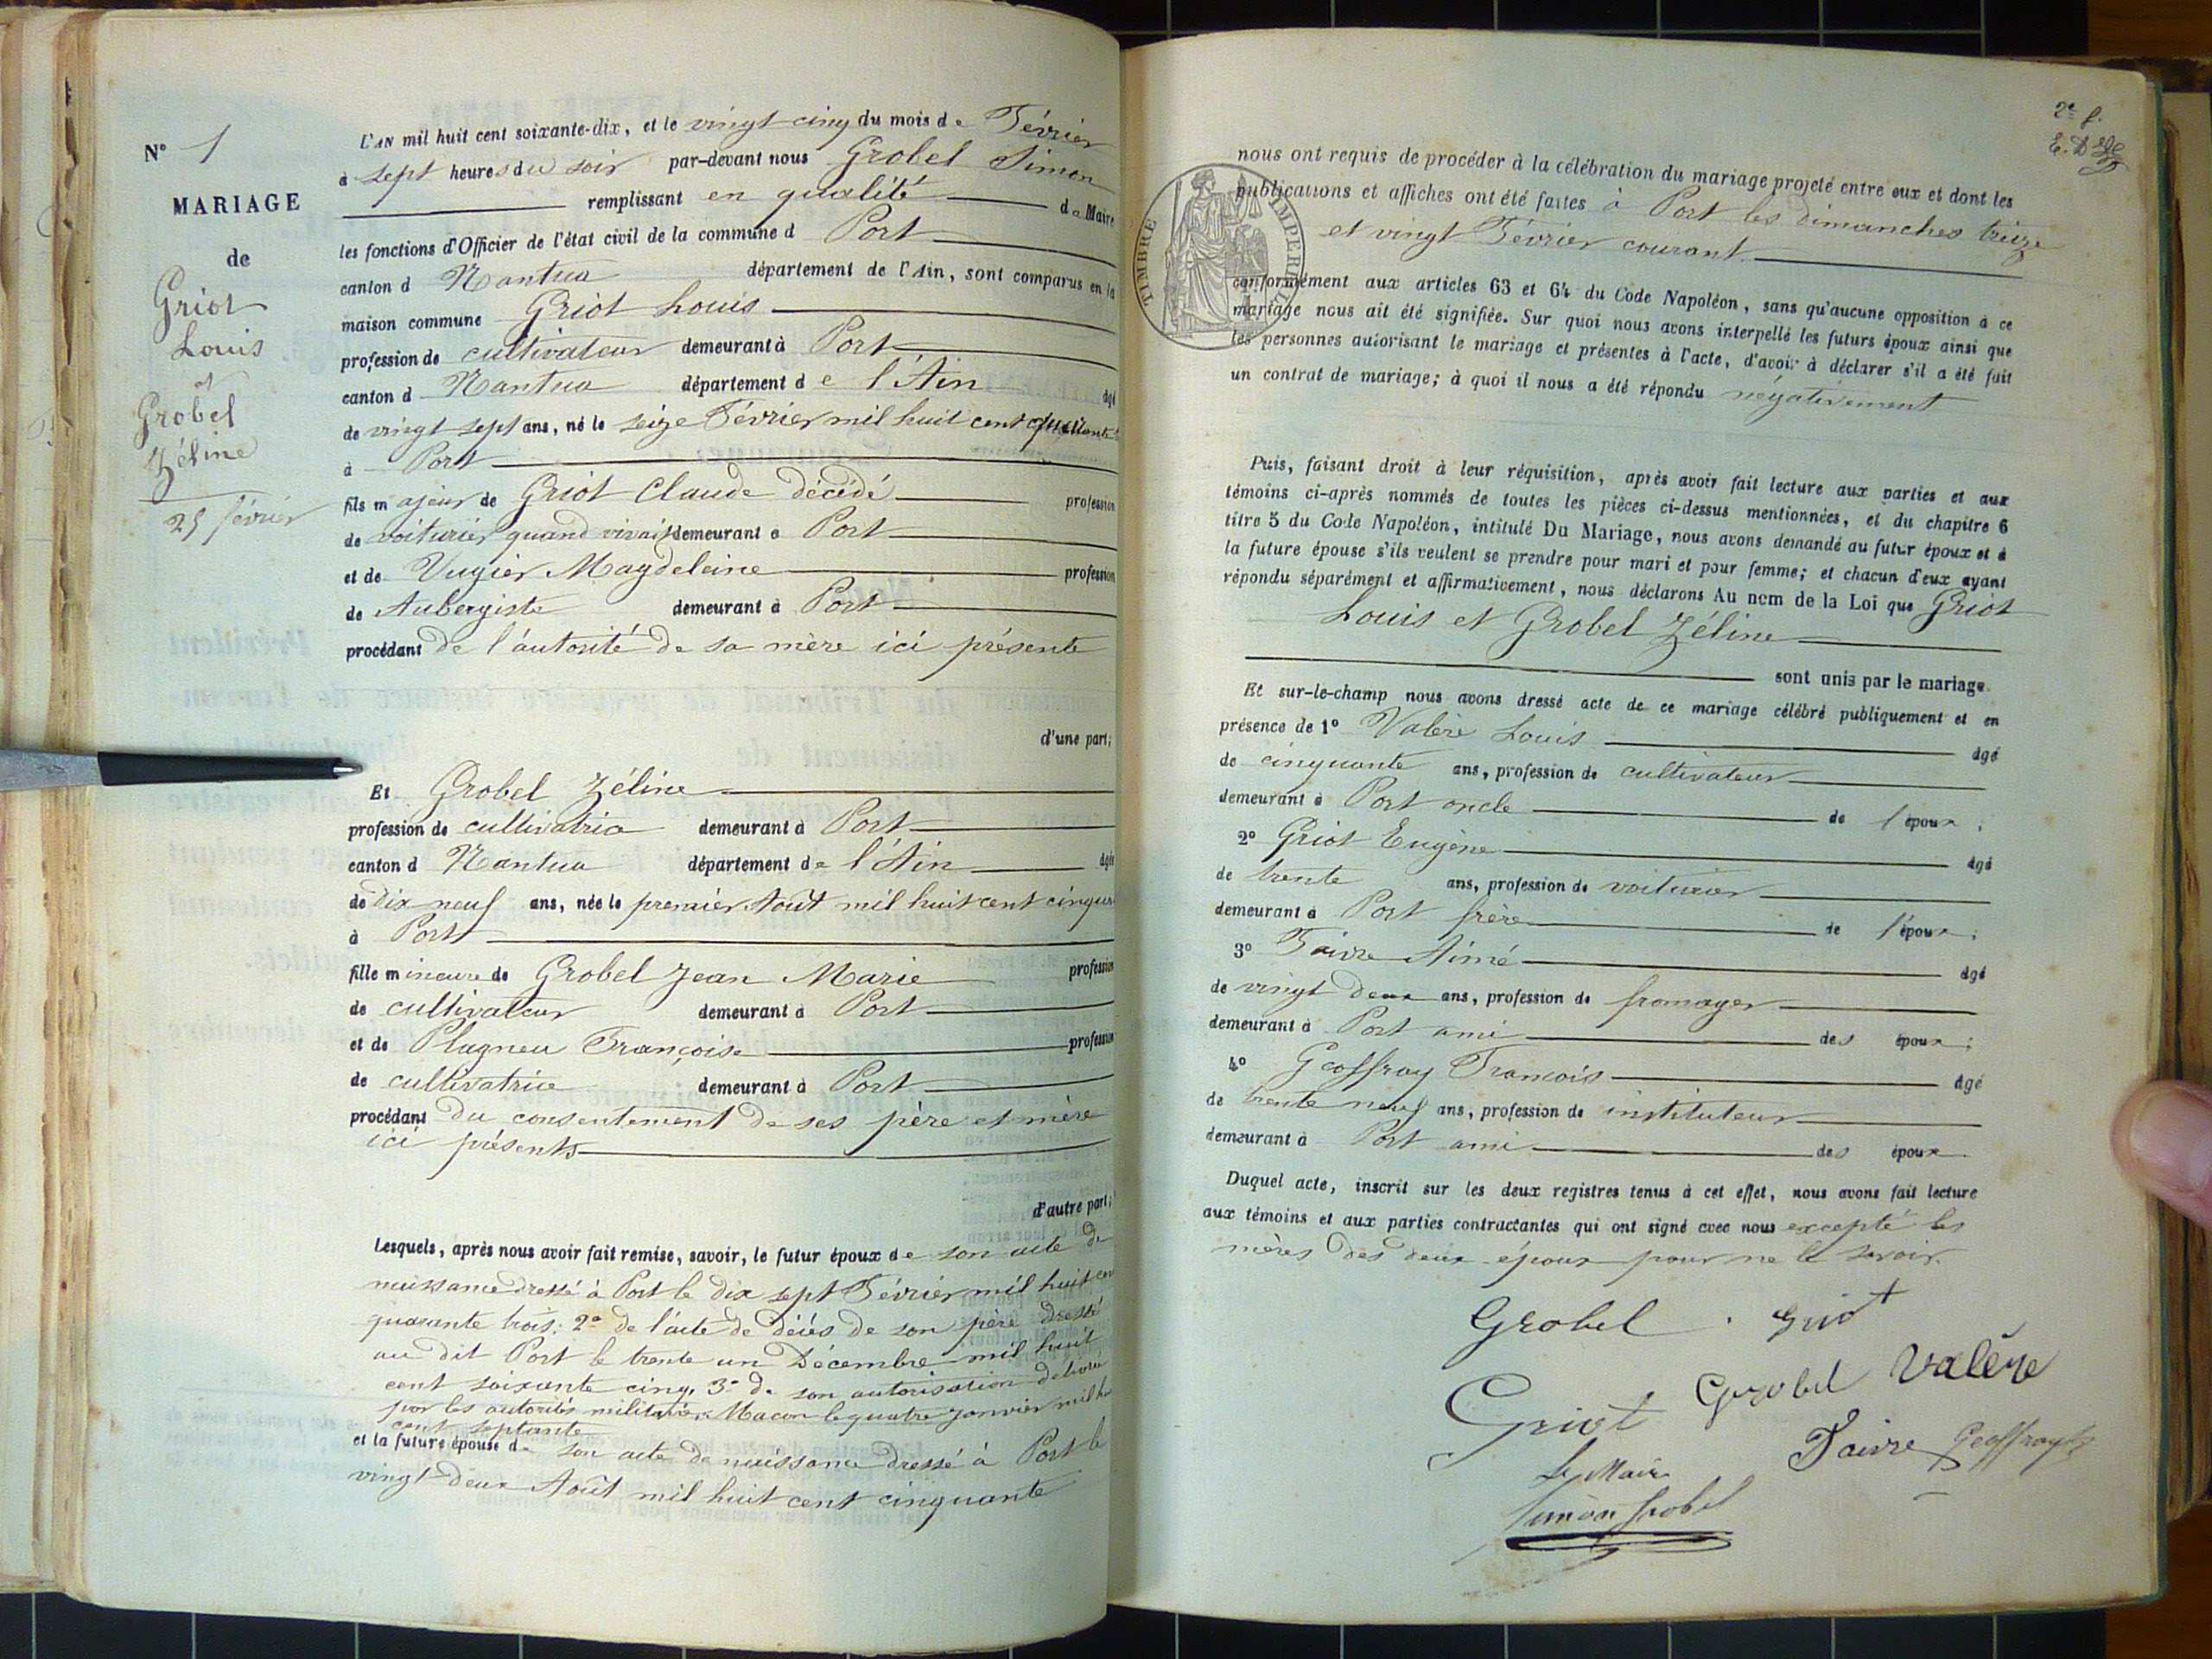 N° 1
MARIAGE
de
Griot
Louis
et
Grobel
Zéline
25 février
L'AN mil huit cent soixante-dix, et le vingt-cinq du mois de Février
à sept heures du soir par-devant nous Grobel Simon
remplissant en qualité de Maire
les fonctions d'Officier de l'état civil de la commune d Port
canton d Nantua département de l'Ain, sont comparus en la
maison commune Griot Louis
profession de cultivateur demeurant à Port
canton d Nantua département de l'Ain âgé
de vingt sept ans, né le seize Février mil huit cent quarante
à Port
fils majeur de Griot Claude décédé profession
de voiturier quand vivait demeurant à Port
et de Vugier Magdeleine profession
de Aubergiste demeurant à Port
procédant de l'autorité de sa mère ici présente
d'une part;
Et Grobel Zéline
profession de cultivatrice demeurant à Port
canton d Nantua département de l'Ain âgée
de dix neuf ans, née le premier Août mil huit cent cinqua
à Port
fille mineure de Grobel Jean Marie profession
de cultivateur demeurant à Port
et de Plagneu Françoise profession
de cultivatrice demeurant à Port
procédant du consentement de ses père et mère
ici présents
d'autre part;
Lesquels, après nous avoir fait remise, savoir, le futur époux de son acte de
naissance dressé à Port le dix sept Février mil huit cen
quarante trois: 2° de l'acte de décès de son père dressé
au dit Port le trente un Décembre mil huit
cent soixante cinq, 3° de son autorisation délivrée
par les autorités militaires Macon le quatre Janvier mil hu
cent septante
et la future épouse de son acte de naissance dressé à Port le
vingt deux Août mil huit cent cinquante
2e f.
TIMBRE IMPERIAL
nous ont requis de procéder à la célébration du mariage projeté entre eux et dont les
publications et affiches ont été faites à Port les dimanches treize
et vingt Février courant
conformément aux articles 63 et 64 du Code Napoléon, sans qu'aucune opposition à ce
mariage nous ait été signifiée. Sur quoi nous avons interpellé les futurs époux ainsi que
les personnes autorisant le mariage et présentes à l'acte, d'avoir à déclarer s'il a été fait
un contrat de mariage; à quoi il nous a été répondu négativement
Puis, faisant droit à leur réquisition, après avoir fait lecture aux parties et aux
témoins ci-après nommés de toutes les pièces ci-dessus mentionnées, et du chapitre 6
titre 5 du Code Napoléon, intitulé Du Mariage, nous avons demandé au futur époux et à
la future épouse s'ils veulent se prendre pour mari et pour femme; et chacun d'eux ayant
répondu séparément et affirmativement, nous déclarons Au nom de la Loi que Griot
Louis et Grobel Zéline
sont unis par le mariage.
Et sur-le-champ nous avons dressé acte de ce mariage célébré publiquement et en
présence de 1° Valère Louis âgé
de cinquante ans, profession de cultivateur
demeurant à Port oncle de l'époux;
2° Griot Eugène âgé
de trente ans, profession de voiturier
demeurant à Port frère de l'époux;
3° Faivre Aimé âgé
de vingt deux ans, profession de fromager
demeurant à Port ami des époux;
4° Geoffray François âgé
de trente neuf ans, profession de instituteur
demeurant à Port ami des époux
Duquel acte, inscrit sur les deux registres tenus à cet effet, nous avons fait lecture
aux témoins et aux parties contractantes qui ont signé avec nous excepté les
mères des deux époux pour ne le savoir.
Grobel. Griot
Griot Grobel Valère
Faivre Geoffray
Le Maire
Simon Grobel